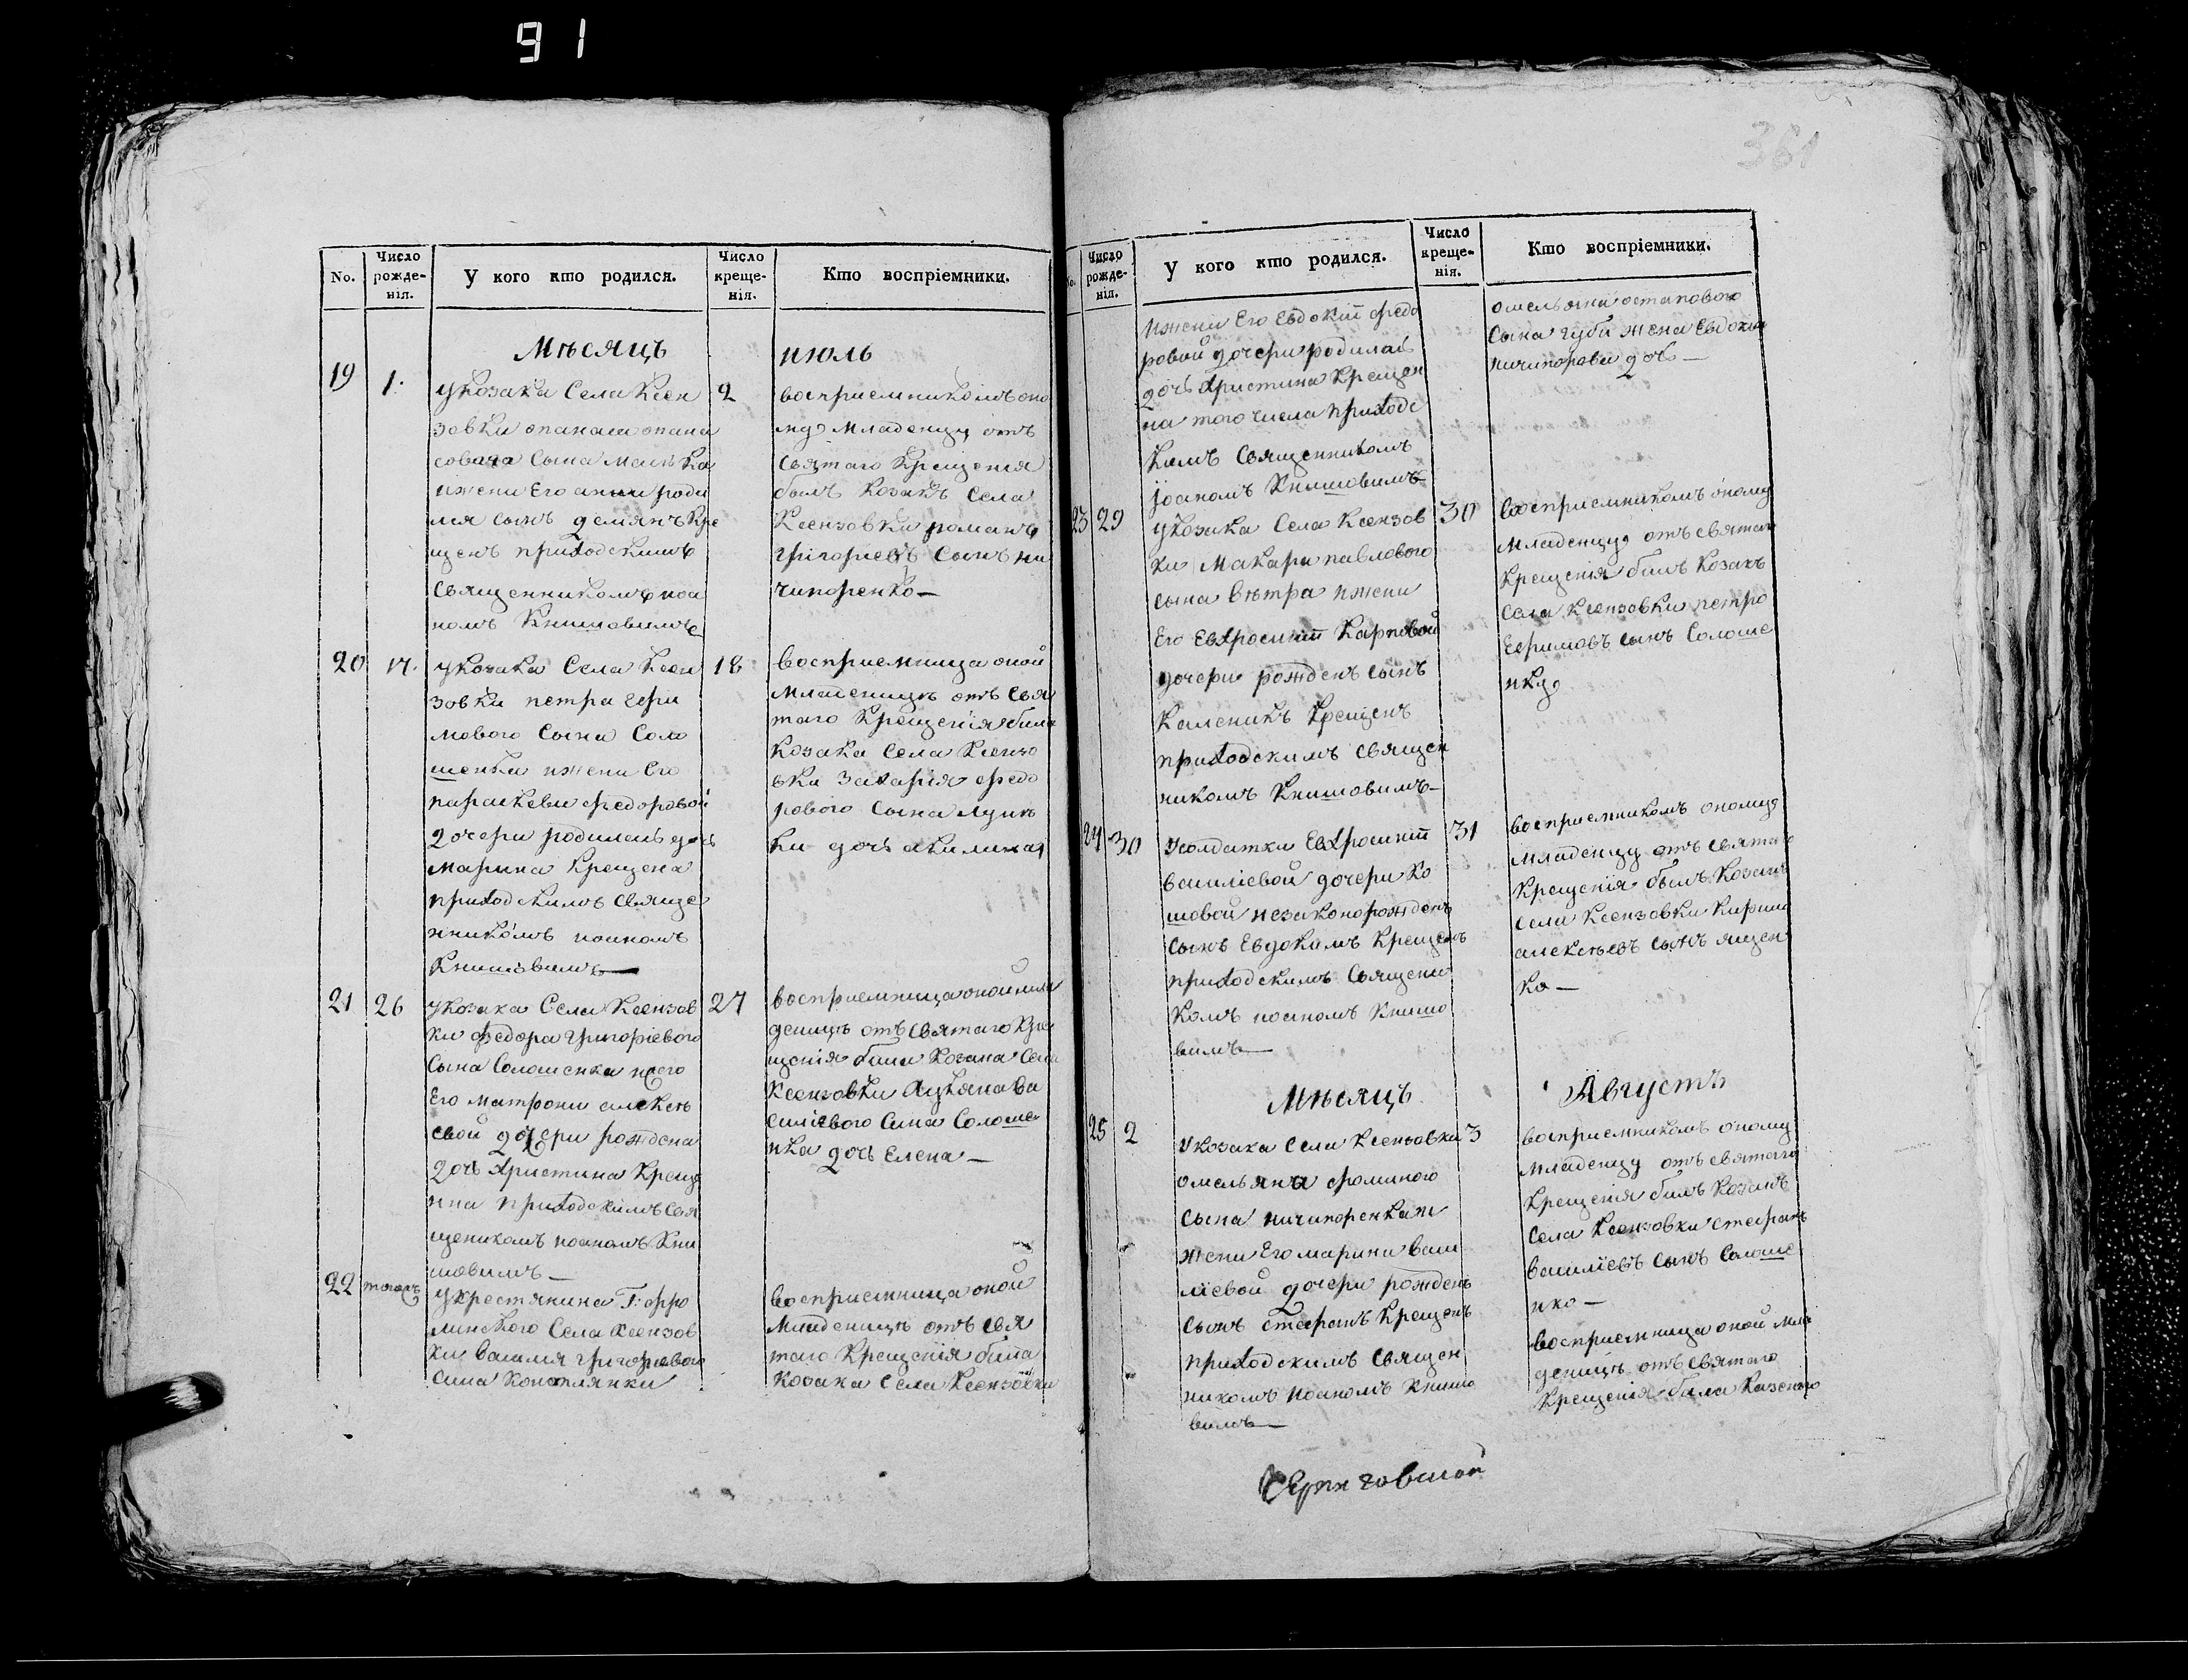 91
361
No.
Число рожде-нія.
У кого кто родился.
Число креще-нія.
Кто воспріемники.
Мѣсяцъ
июль
19
1.
укозака Села Ксен
зовки опанаса опана
совича Сына
ижени Его анни роди
лся сынъ демянъ Кре
щенъ приходскимъ
Священникомъ иоа
номъ Книшовимъ
2
восприемникомъ оно
му Младенцу отъ
Святаго Крещенія
былъ Козакъ Села
Ксензовки романъ
Григориевъ Сынъ ни
чипоренко—
20
17.
укозака Села Ксен
зовки петра Ефри
мового Сына Соло
шенка ижени Его
параскеви федоровой
дочери родилась дочь
Марина Крещена
приходскимъ Свяще
нникомъ иоаномъ
Книшовимъ—
18
восприемница оной
Младеницѣ отъ Свя
таго Крещенія била
Козака Села Ксензо
вки Захария федо
рового Сына
ки дочь акилина
21
26
укозака Села Ксензов
ки федора Григоріевого
Сына Солошенка
Его матрони алексѣ
евой дочери рождена
дочь Христина Креще
нна приходскимъ Свя
щеникомъ иоаномъ Кни
шовимъ—
27
восприемница оной мла
деницѣ отъ Святаго Кре
щенія била Козака Села
Ксензовки Лукяна Ва
силієвого Сина Солоше
нка дочь Елена—
22
тогожъ
укрестянина Г:
Села Ксензов
ки василя григориевого
сина
восприемница оной
Младеницѣ отъ Свя
таго Крещенія била
Козака Села Ксензовки
No.
Число рожде-нія.
У кого кто родился.
Число креще-нія.
Кто воспріемники.
ижени Его Евдокіи федо
ровой дочери родилась
дочь Христина Крещен
на того числа приходс
кимъ Священникомъ
іоаномъ Книшовимъ
омельяна остапового
Сына губи жена Евдокия
ничипорова дочь—
23
29
укозака Села Ксензов
ки Макара павлового
сына вѣтра ижени
Его Евхросиніи Карповой
дочери рожденъ сынъ
Каленикъ Крещенъ
приходскимъ Священ
никомъ Книшовимъ—
30
восприемникомъ оному
Младенцу отъ Святаго
Крещенія билъ Козакъ
Села Ксензовки петро
Ефримовъ сынъ Солоше
нко
24
30
Усолдатки Евхросиніи
василіевой дочери Ко
шовой незаконорожденъ
Сынъ Евдокимъ Крещенъ
приходскимъ Священи
комъ иоаномъ Книшо
вимъ—
31
восприемникомъ оному
Младенцу отъ Святаго
Крещенія былъ Козакъ
Села Ксензовки Кирило
алексѣевъ сынъ ящен
ко—
Мѣсяцъ
Августъ
25
2
Укозака Села Ксензовки
омельяна фоминого
Сына ничипоренка и
жени Его марини васи
лієвой дочери рожденъ
Сынъ Стефанъ Крещенъ
приходскимъ Священ
никомъ Иоаномъ Книшо
вимъ—
3
восприемникомъ оному
Младенцу отъ Святаго
Крещенія билъ Козакъ
Села Ксензовки Стефанъ
василіевъ сынъ Солоше
нко—
восприемница оной мла
деницѣ отъ Святаго
Крещенія била Казеного